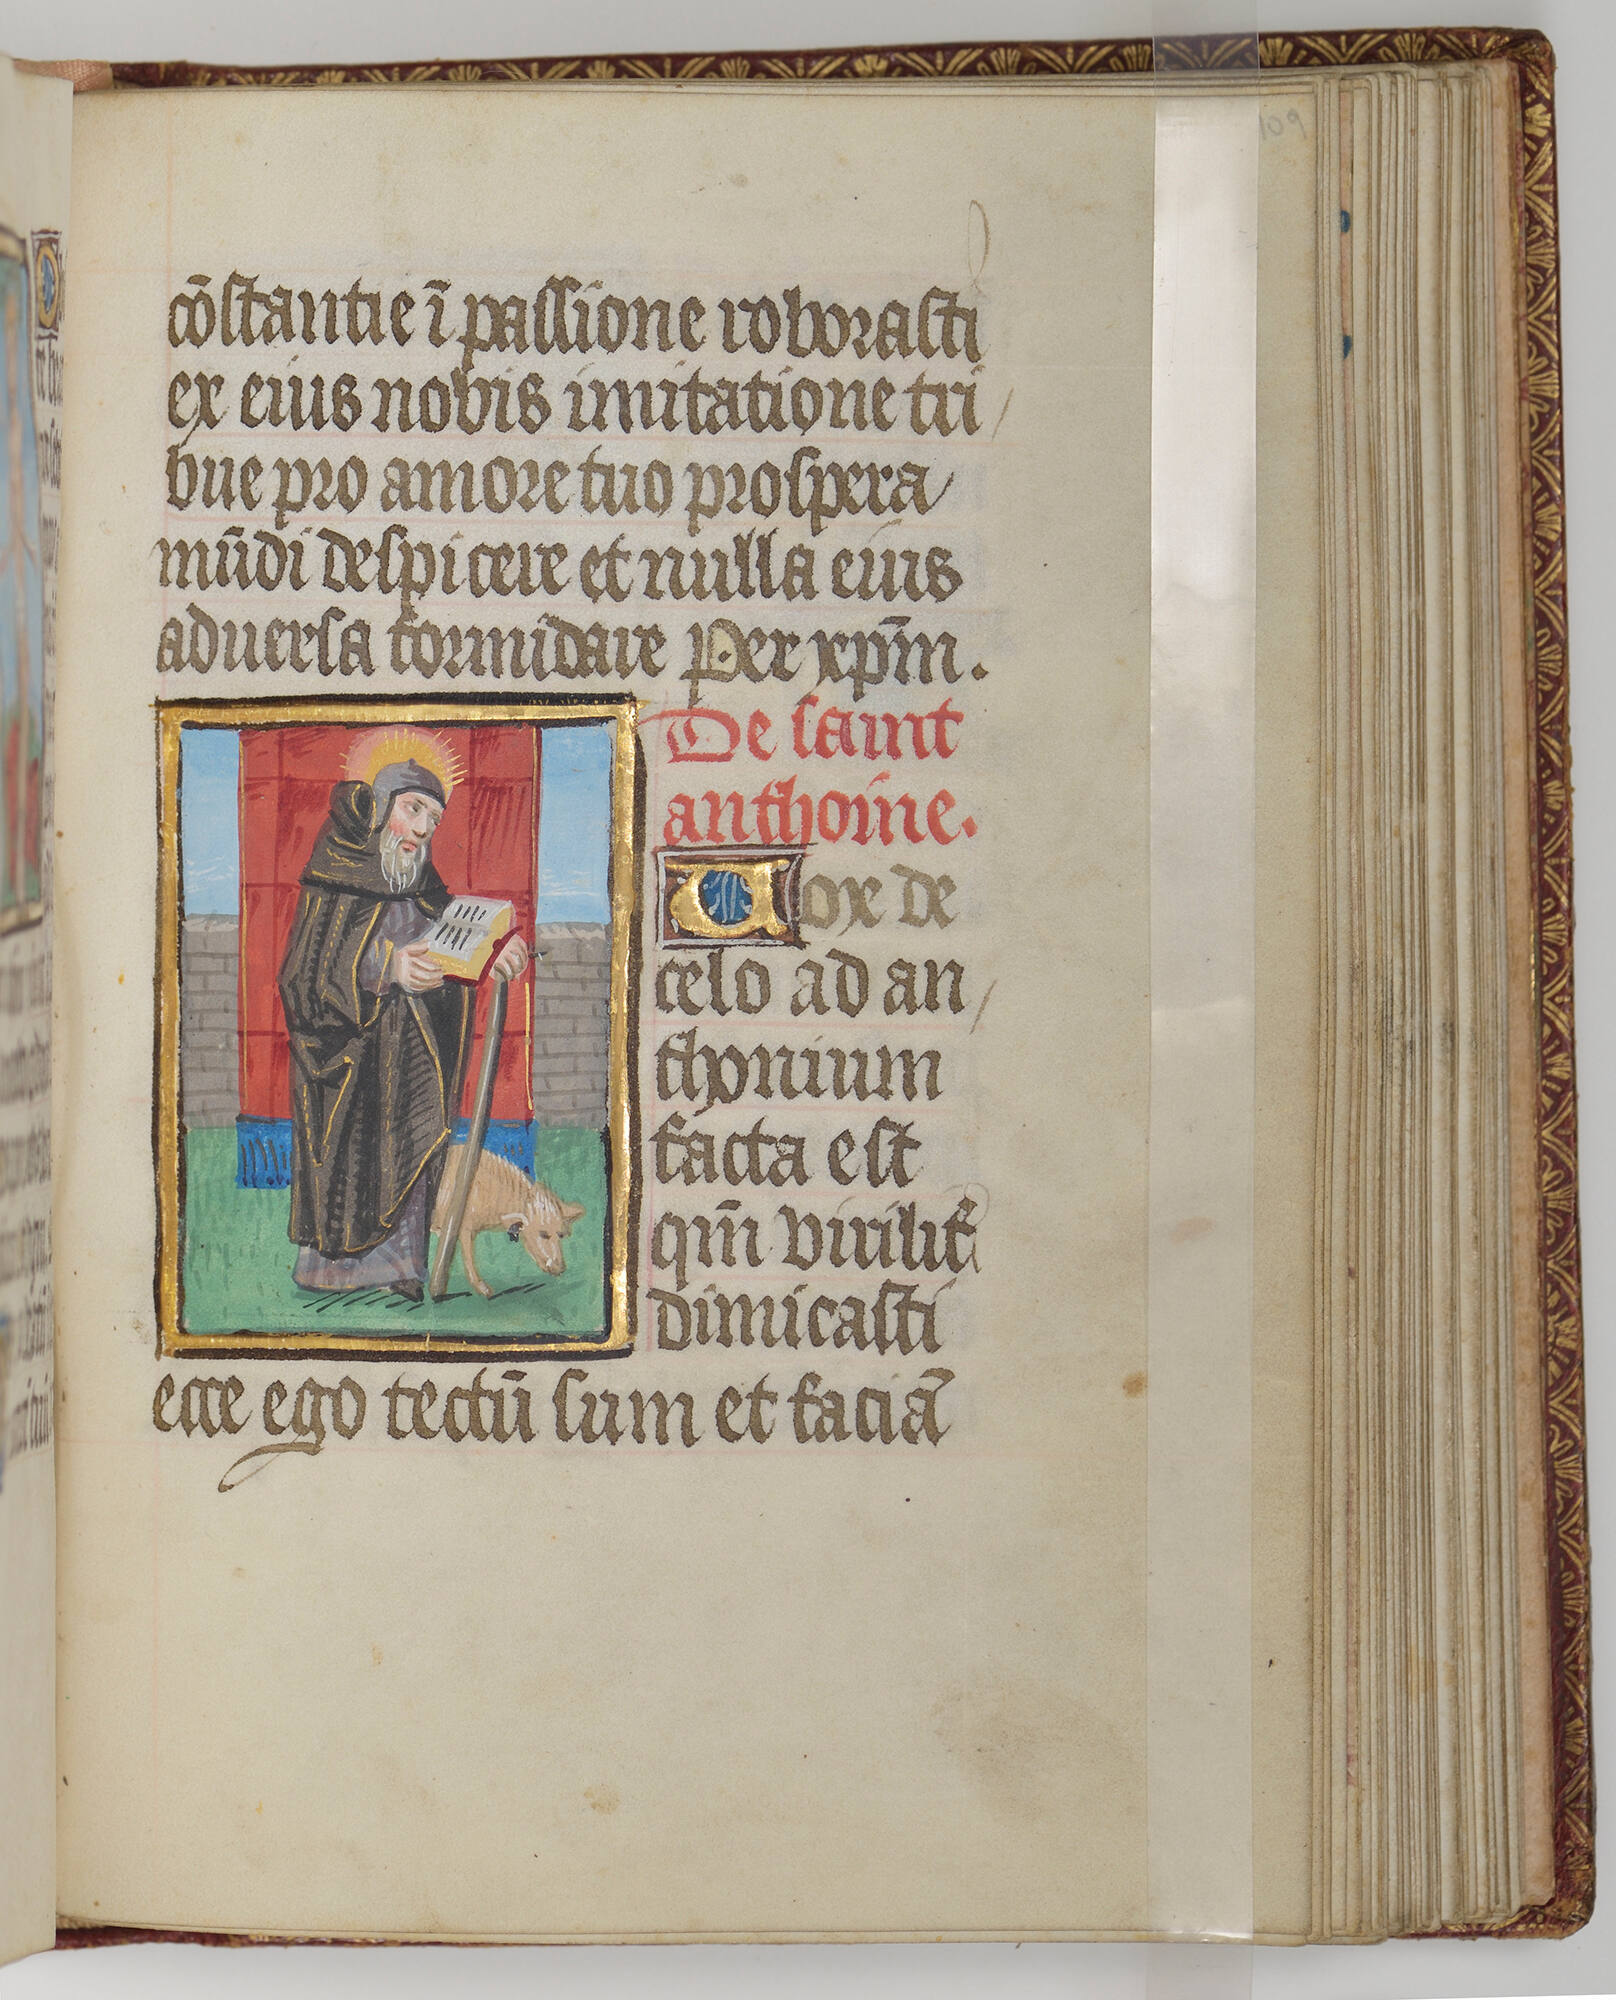 109
cōstantie ī passione roborasti
ex eius nobis imitatione tri/
bue pro amore tuo prospera
mūdi despicere et nulla eius
aduersa formidare Per xp̄m.
De saint
anthoine.
Vox de
celo ad an/
thonium
facta est
qm̄ virilit̄
dimicasti
ecce ego tectū sum et faciā